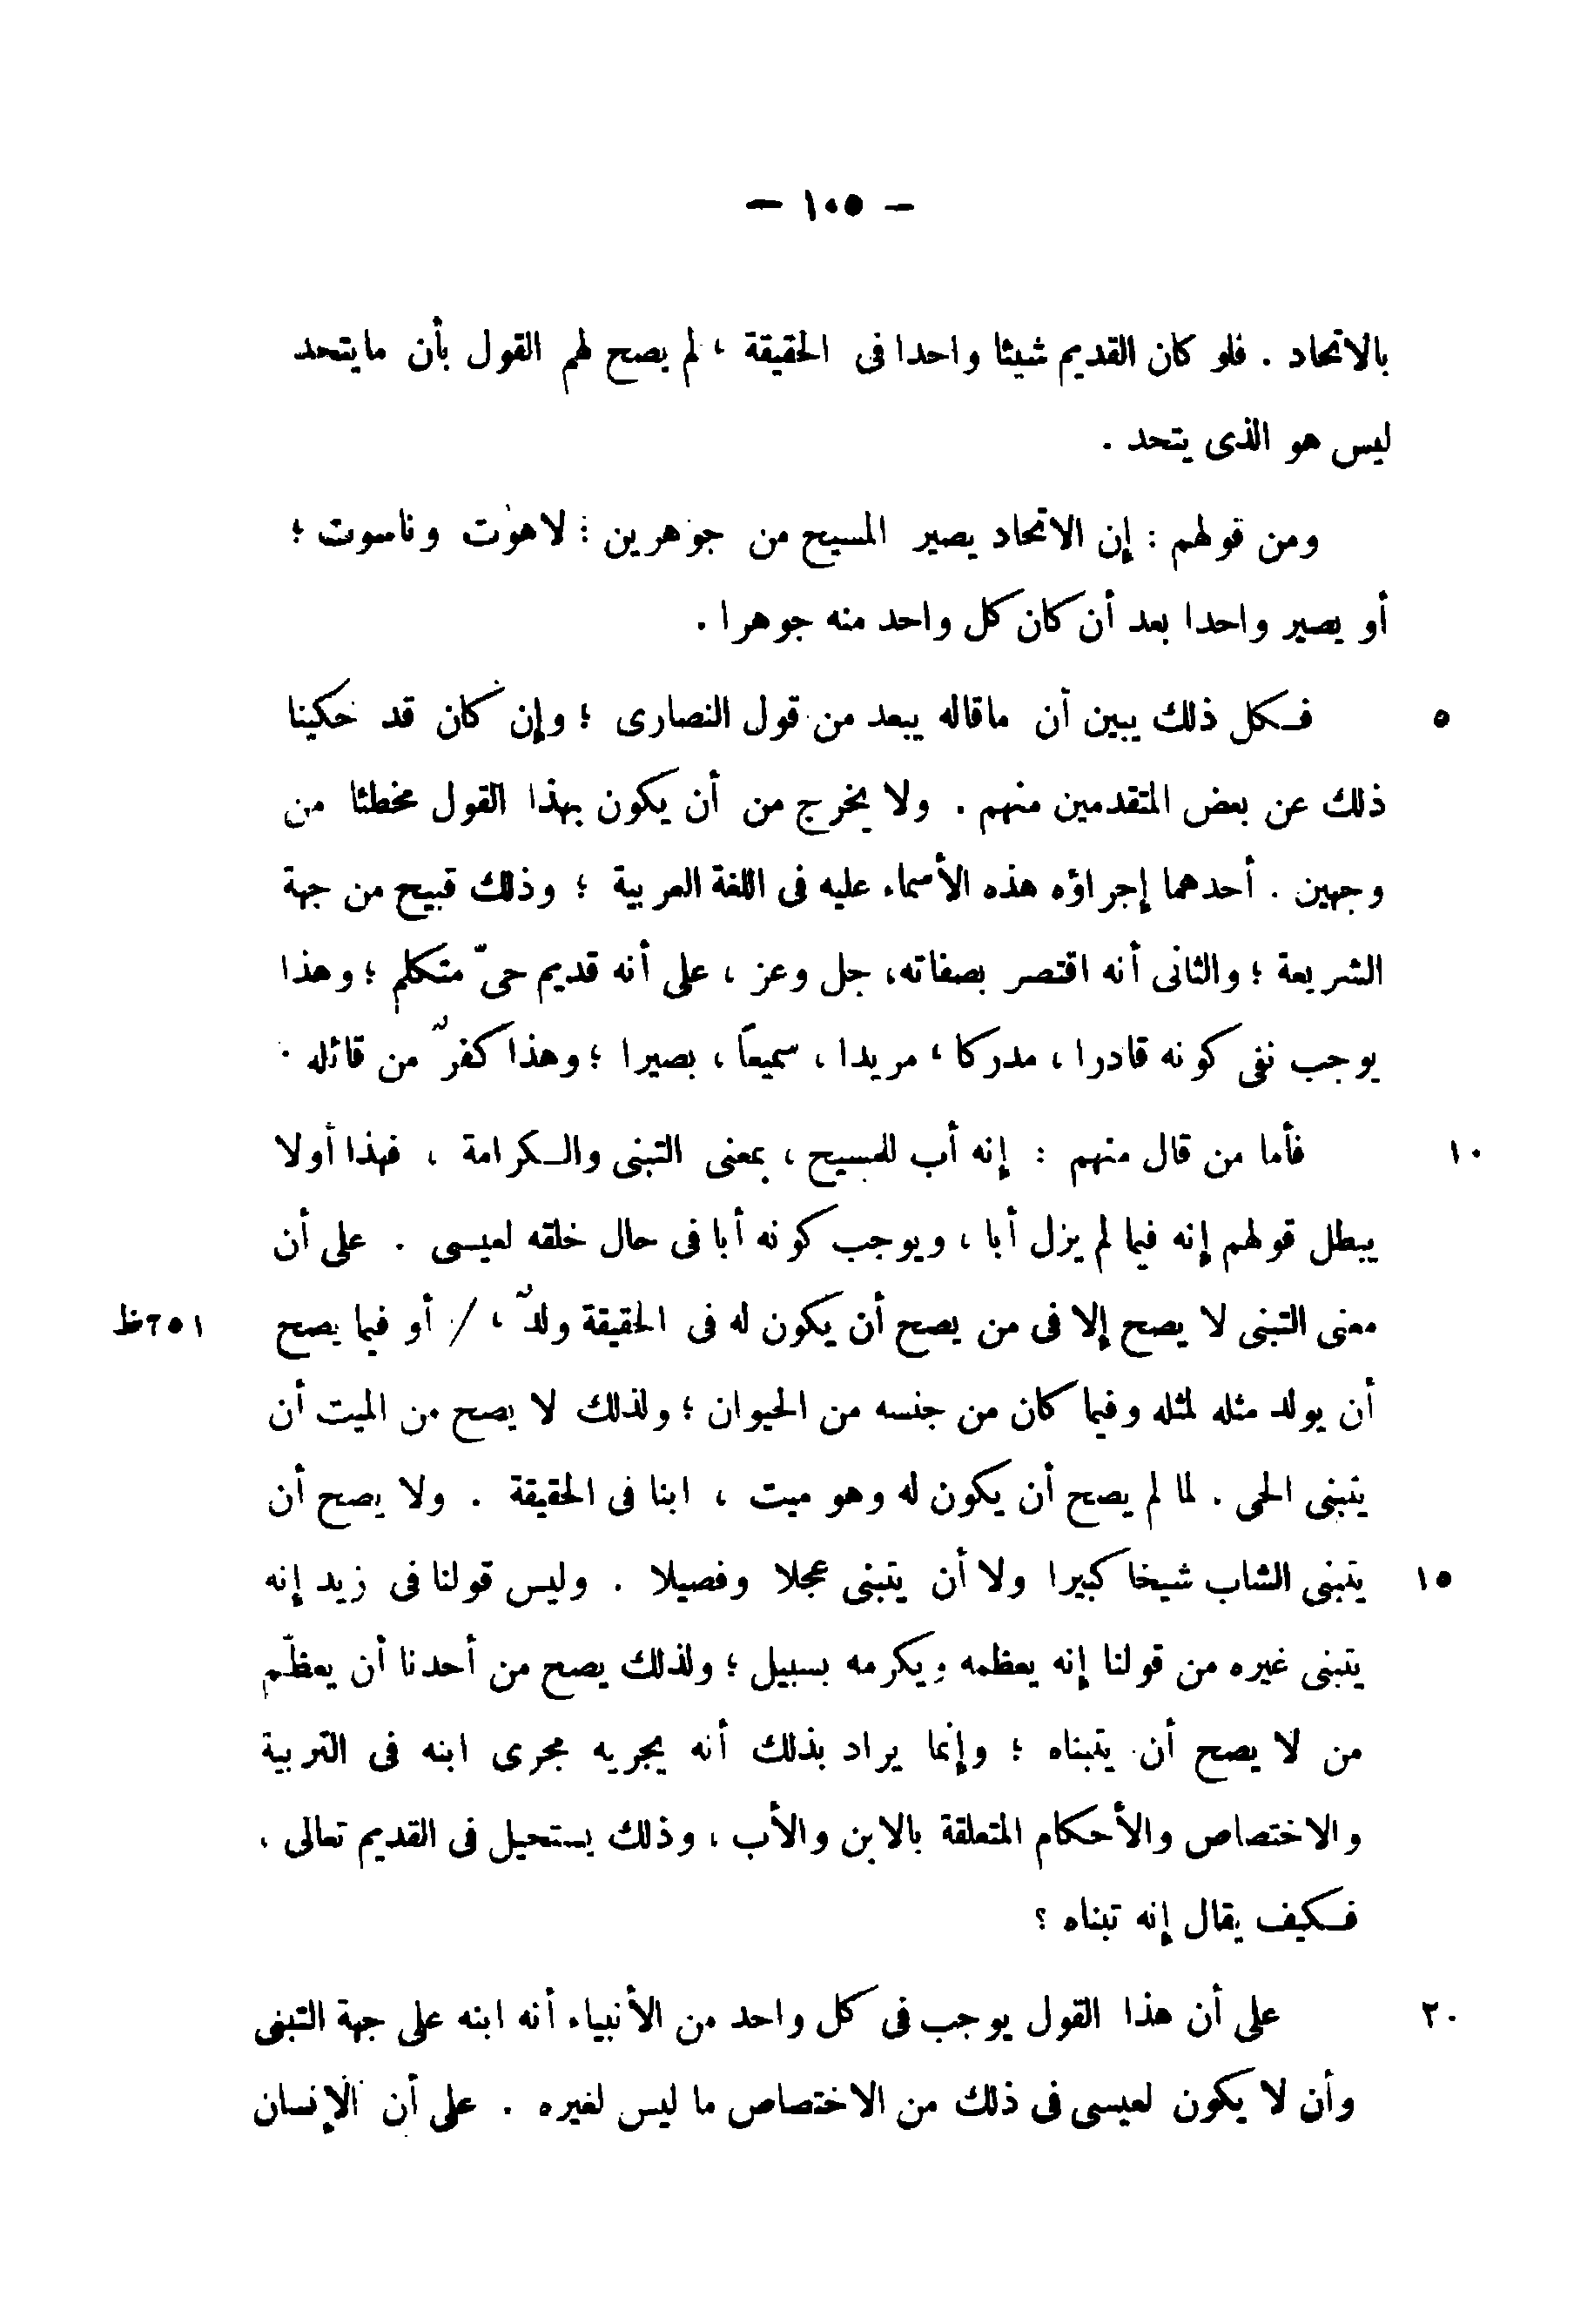 — ١٠٥ —
بالاتحاد . فلو كان القديم شيئا واحدا فى الحقيقة ، لم يصح لهم القول بأن مايتحد
ليس هو الذى يتحد .
ومن قولهم : إن الاتحاد يصير المسيح من جوهرين : لاهوت وناسوت ؛
أو يصير واحدا بعد أن كان كل واحد منه جوهرا .
٥ فكل ذلك يبين أن ماقاله يبعد من قول النصارى ؛ وإن كان قد حكينا
ذلك عن بعض المتقدمين منهم . ولا يخرج من أن يكون بهذا القول مخطئا من
وجهين . أحدهما إجراؤه هذه الأسماء عليه فى اللغة العربية ؛ وذلك قبيح من جهة
الشريعة ؛ والثانى أنه اقتصر بصفاته، جل وعز ، على أنه قديم حىّ متكلم ؛ وهذا
يوجب نفى كونه قادرا ، مدركا ، مريدا ، سميعاً ، بصيرا ؛ وهذا كفرٌ من قائله .
١٠ فأما من قال منهم : إنه أب للمسيح ، بمعنى التبنى والكرامة ، فهذا أولا
يبطل قولهم إنه فيما لم يزل أبا ، ويوجب كونه أبا فى حال خلقه لعيسى . على أن
معنى التبنى لا يصح إلا فى من يصح أن يكون له فى الحقيقة ولدٌ ، / أو فيما يصح ١٥٢ظ
أن يولد مثله لمثله وفيما كان من جنسه من الحيوان ؛ ولذلك لا يصح من الميت أن
يتبنى الحى . لما لم يصح أن يكون له وهو ميت ، ابنا فى الحقيقة . ولا يصح أن
١٥ يتبنى الشاب شيخا كبيرا ولا أن يتبنى عجلا وفصيلا . وليس قولنا فى زيد إنه
يتبنى غيره من قولنا إنه يعظمه ويكرمه بسبيل ؛ ولذلك يصح من أحدنا أن يعظّم
من لا يصح أن يتبناه ؛ وإنما يراد بذلك أنه يجريه مجرى ابنه فى التربية
والاختصاص والأحكام المتعلقة بالابن والأب ، وذلك يستحيل فى القديم تعالى ،
فكيف يقال إنه تبناه ؟
٢٠ على أن هذا القول يوجب فى كل واحد من الأنبياء أنه ابنه على جهة التبنى
وأن لا يكون لعيسى فى ذلك من الاختصاص ما ليس لغيره . على أن الإنسان